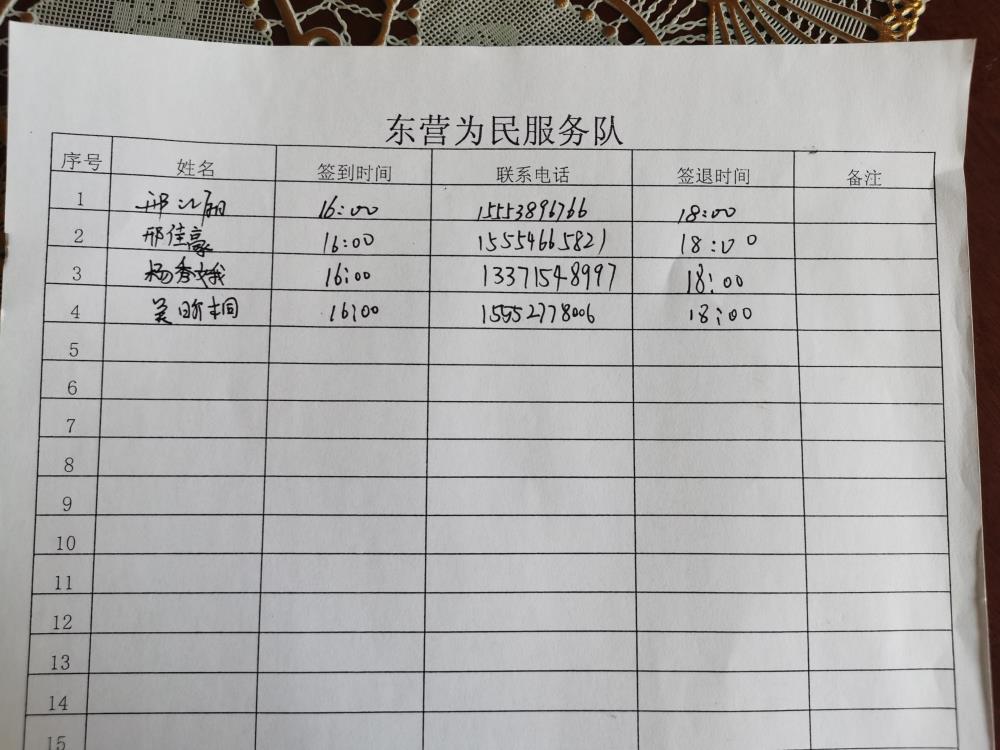 东营为民服务队
序号 姓名 签到时间 联系电话 签退时间 备注
1 邢 16:00 15553896766 18:00
2 邢佳豪 16:00 15554665821 18:00
3 杨秀娥 16:00 13371548997 18:00
4 16:00 15552778006 18:00
5
6
7
8
9
10
11
12
13
14
15